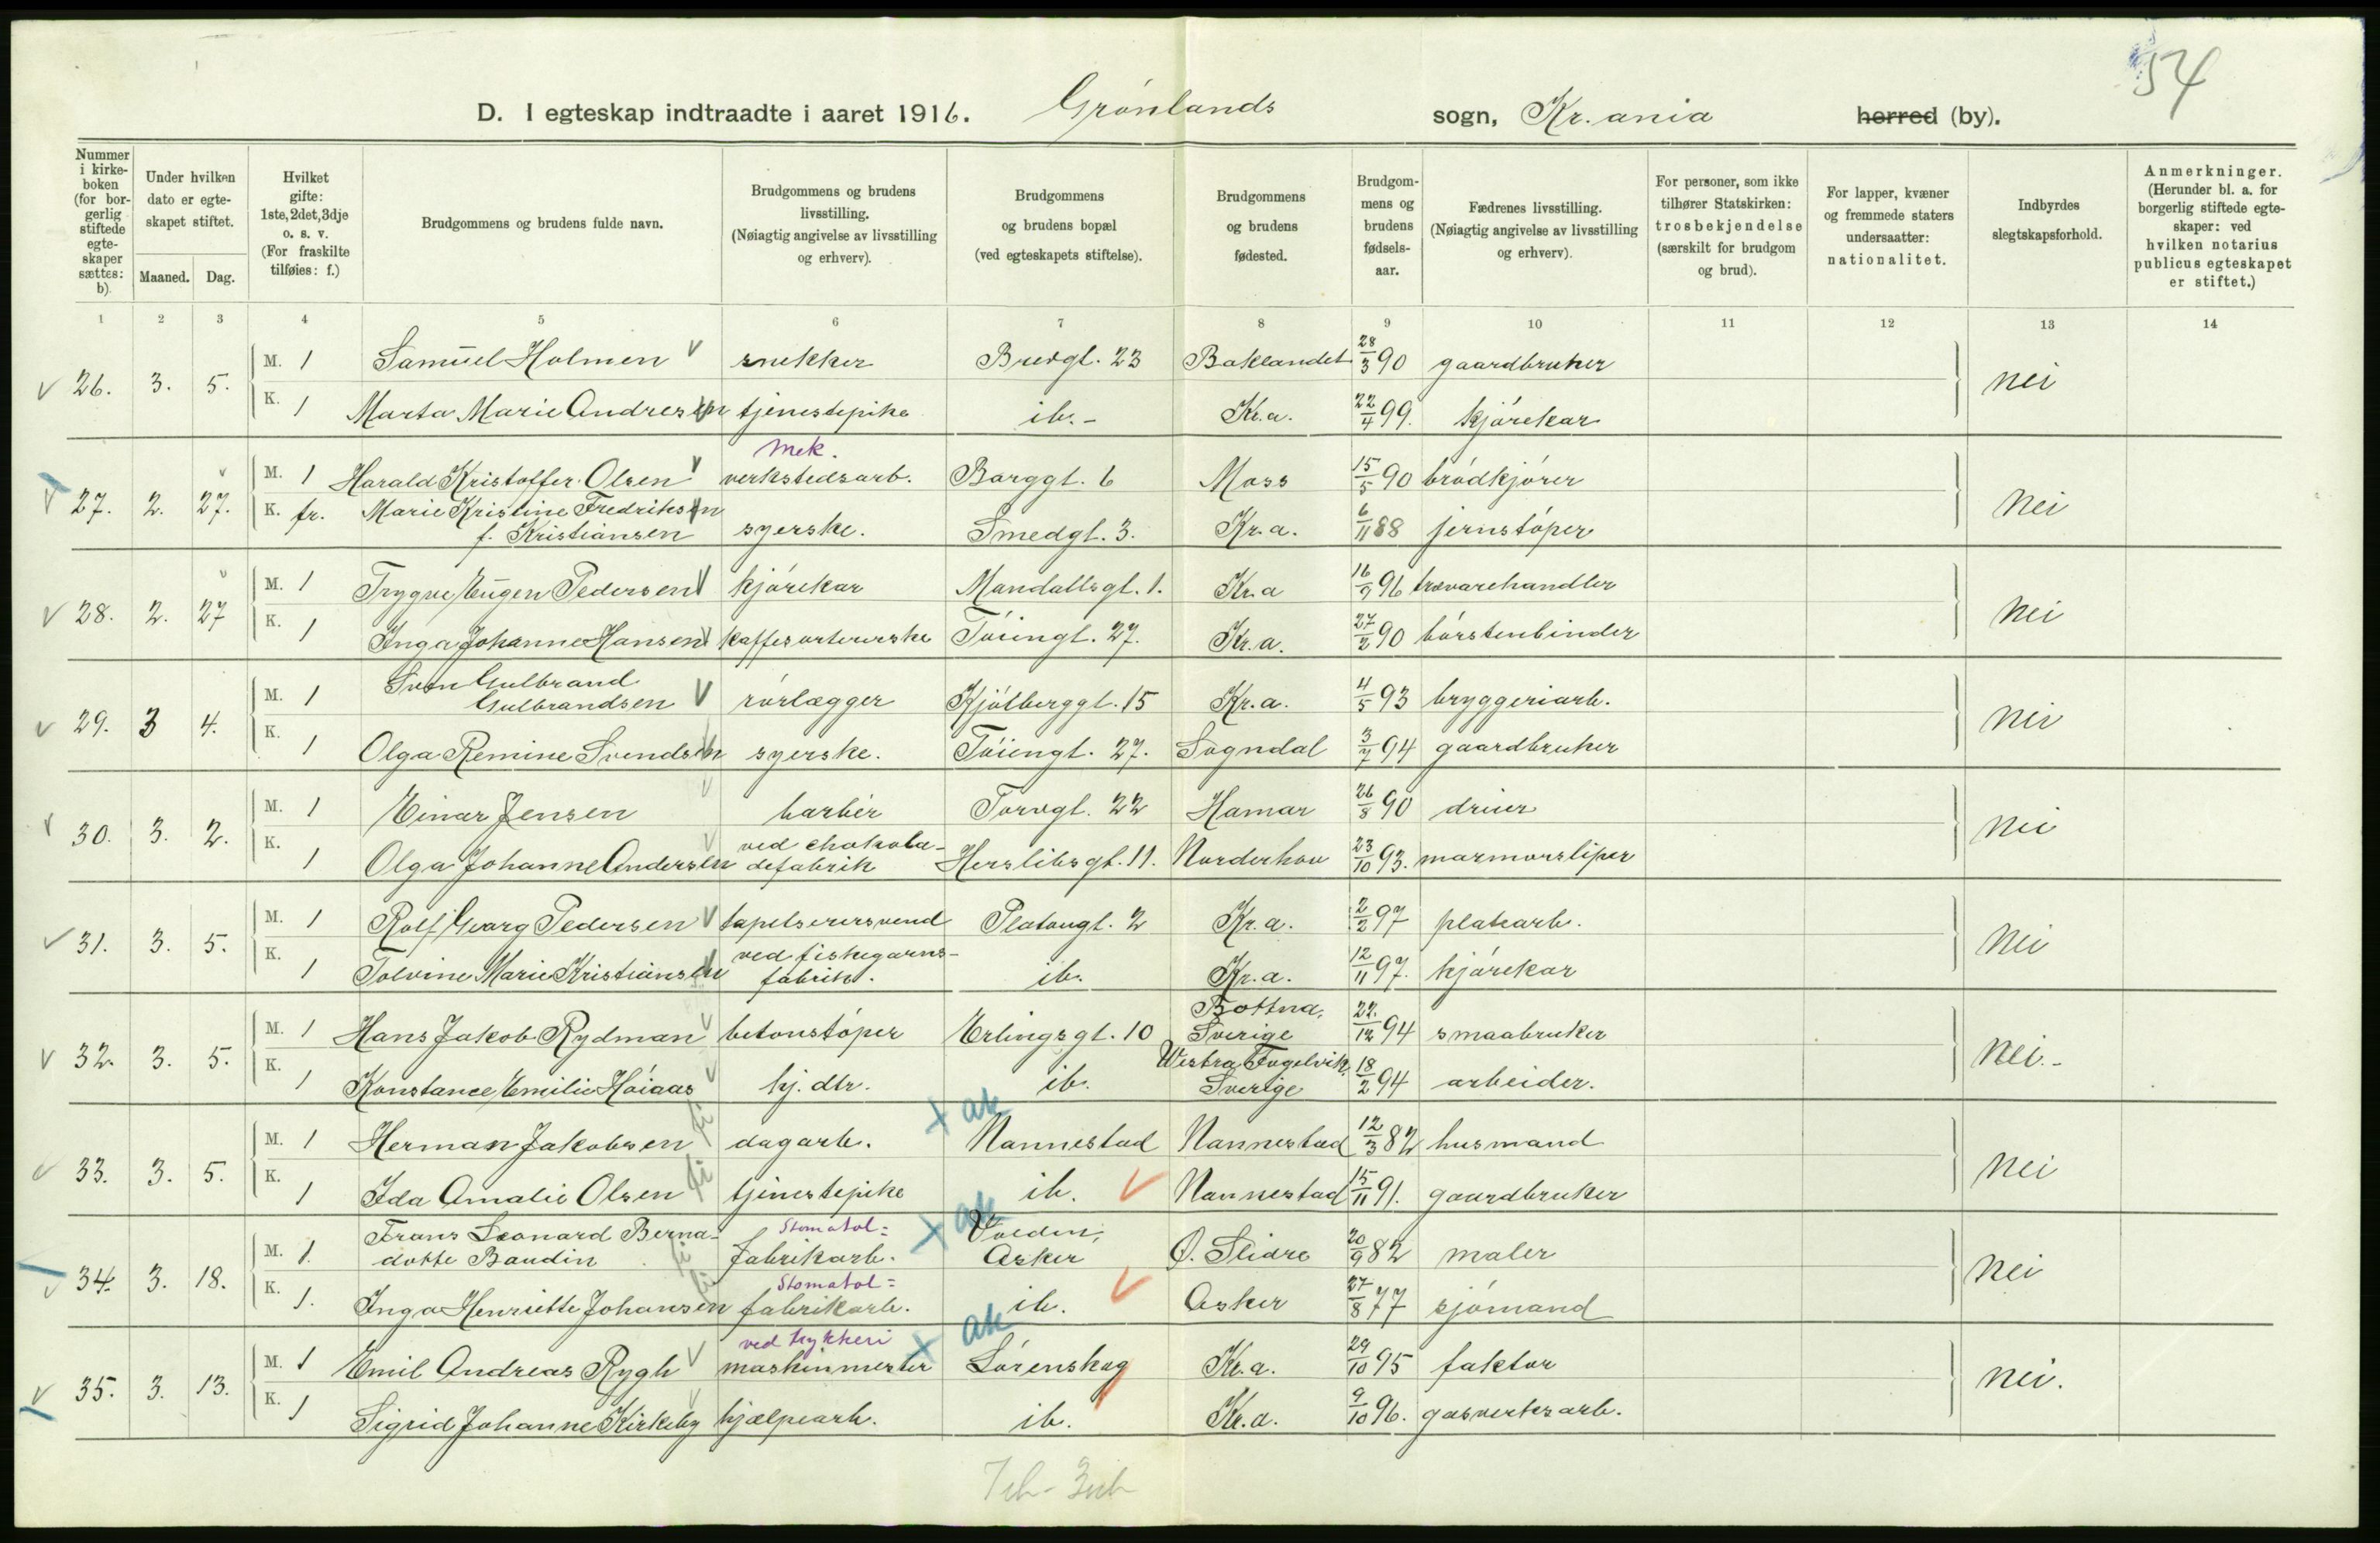 54
D. I egteskap indtraadte i aaret 1916. Grønlands sogn, Kr.ania herred (by).
Nummer i kirkeboken (for borgerlig stiftede egteskaper sættes: b).
Under hvilken dato er egteskapet stiftet.
Maaned. Dag.
Hvilket gifte: 1ste, 2det, 3dje o. s. v. (For fraskilte tilføies: f.)
Brudgommens og brudens fulde navn.
Brudgommens og brudens livsstilling. (Nøiagtig angivelse av livsstilling og erhverv).
Brudgommens og brudens bopæl (ved egteskapets stiftelse).
Brudgommens og brudens fødested.
Brudgommens og brudens fødselsaar.
Fædrenes livsstilling. (Nøiagtig angivelse av livsstilling og erhverv).
For personer, som ikke tilhører Statskirken: trosbekjendelse (særskilt for brudgom og brud).
For lapper, kvæner og fremmede staters undersaatter: nationalitet.
Indbyrdes slegtskapsforhold.
Anmerkninger. (Herunder bl. a. for borgerlig stiftede egteskaper: ved hvilken notarius publicus egteskapet er stiftet.)
1 2 3 4 5 6 7 8 9 10 11 12 13 14
26. 3. 5. M. 1 Samuel Holmen snekker Burgt. 23 Baklandet 28/3 90 gaardbruker nei
K. 1 Marta Marie Andresen tjenestepike ib. - Kr.a. 22/4 99. kjørekar
Mek.
27. 2. 27. M. 1 Harald Kristoffer Olsen verkstedsarb. Borggt. 6 Moss 15/5 90 brødkjører nei
K. fr. Marie Kristine Fredriksen
f. Kristiansen syerske. Smedgt. 3. Kr.a. 6/11 88 jernstøper
28. 2. 27 M. 1 Trygve Eugen Pedersen kjørekar Mandallsgt. 1. Kr.a 16/9 96 trævarehandler nei
K. 1 Inga Johanne Hansen kaffesortererske Tøiengt. 27. Kr.a. 27/2 90 børstenbinder
29. 3 4. M. 1 Sven Gulbrand
Gulbrandsen rørlægger Kjølberggt. 15 Kr.a. 4/5 93 bryggeriarb. nei
K. 1 Olga Remine Svendsen syerske. Tøiengt. 27. Sogndal 3/7 94 gaardbruker
30. 3. 2. M. 1 Einar Jensen barbér Torvgt. 22 Hamar 26/8 90 driver nei
K. 1 Olga Johanne Andersen ved chokola-
defabrik Herslibsgt. 11. Norderhov 23/10 93. marmorsliper
31. 3. 5. M. 1 Rolf Georg Pedersen tapetserersvend Platougt. 2 Kr.a. 2/2 97 platearb. nei
K. 1 Tolvine Marie Kristiansen ved fiskegarns-
fabrik. ib. Kr.a. 12/11 97. kjørekar
32. 3. 5. M. 1 Hans Jakob Rydman betonstøper Erlingsgt. 10 Bottna,
Sverige 22/12 94 smaabruker nei. -
K. 1 Konstance Emilie Høiaas hj. dtr. ib. Westra Fogelvik,
Sverige 18/2 94 arbeider.
ak
33. 3. 5. M. 1 Herman Jakobsen dagarb. Nannestad Nannestad 12/3 82 husmand nei
K. 1 Ida Amalie Olsen tjenestepike ib. Nannestad 15/11 91. gaardbruker
ak
34. 3. 18. M. 1. Frans Leonard Berna-
dotte Baudin Stomatol=
fabrikarb. Volden,
Asker Ø. Slidre 20/9 82 maler nei
K. 1. Inga Henriette Johansen Stomatol=
fabrikarb. ib. Asker 27/8 77 sjømand
ak
ved trykkeri
35. 3. 13. M. 1 Emil Andreas Rygh maskinmester Lørenskog Kr.a. 29/10 95 faktor nei.
K. 1 Sigrid Johanne Kirkeby hjælpearb. ib. Kr.a. 9/10 96. gasverksarb.